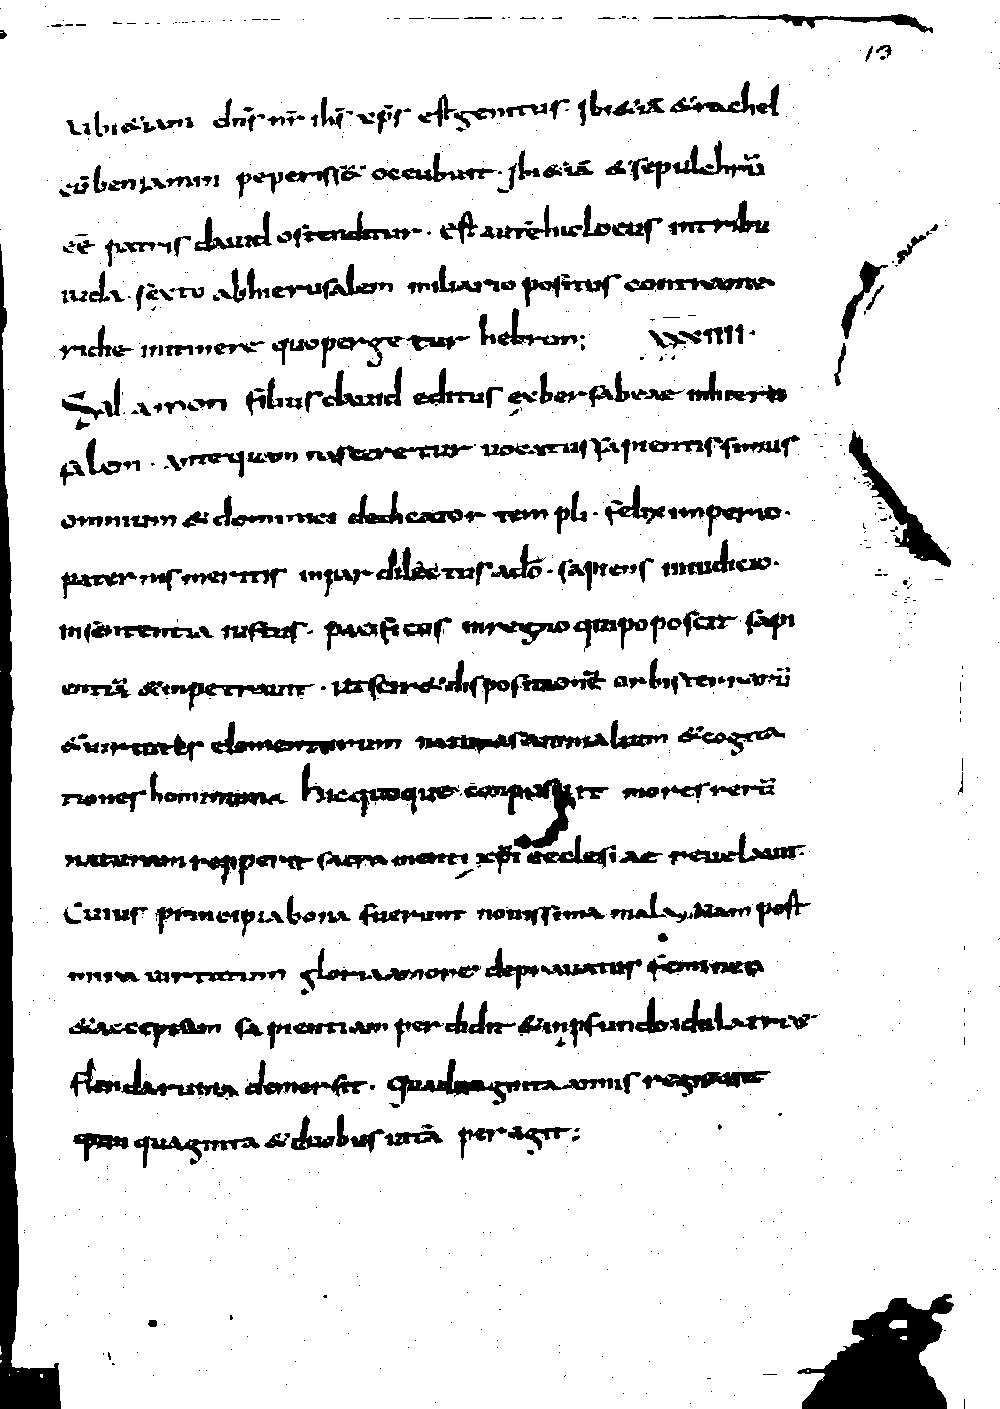 13
ubi &iam dns nr ihs xps est genitus. Ibi &iā & rachel
cū beniamin peperiss& occubuit. Ibi &iā & sepulchrū
eē patris david ostenditur. est autē hic locus in tribu
iuda. sexto ab hierusalem miliario positus contra me
ridie in itinere quo perge tur hebron; XXXIIII.
Salamon filius david editus ex bersabeae in hieru
salem. antequam nasceretur vocatus sapientissimus
omnium & dominici dedicator templi. felix imperio.
paternis meritis inpar dilectus a dō. sapiens in iudicio.
in sententia iustus. pacificus in regno qui poposcit sapi
entiā & inpetravit. ut scir& dispositionē orbis terrarū
& virtutes elementorum naturas animalium & cogita
tiones hominum hic quoque composuit mores rerū
naturam repperit sacramenti xpi ecclesiae revelavit.
Cuius principia bona fuerunt novissima mala, Nam post
mira virtutum gloria amore depravatus feminea
& acceptam sapientiam perdidit & in profundo idolatriae
flenda ruina demersit. Quadraginta annis regnavit
quinquaginta & duobus vitā peragit;